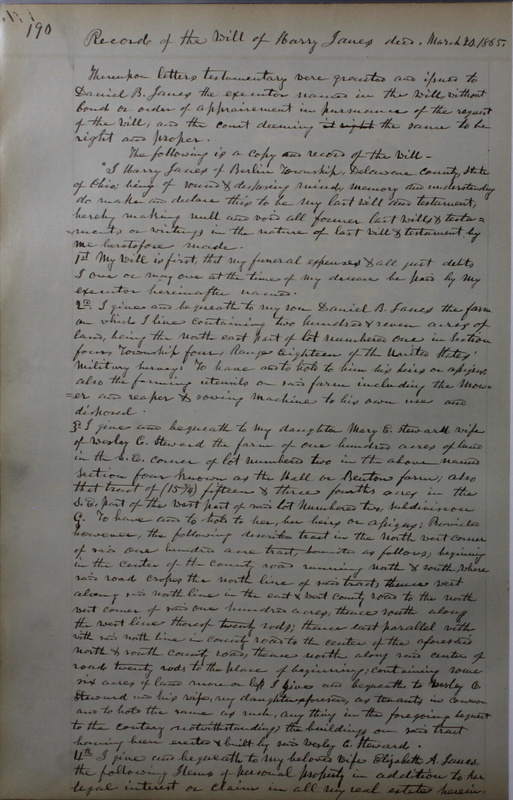 190
Record of the Will of Harry Janes decd. March 20. 1865.
Thereupon letters testamentary were granted and issued to
Daniel B. Janes the executor named in the will without
bond or order of appraisement in pursuance of the request
of the will, and the court deeming it right the same to be
right and proper.
The following is a copy and record of the Will -
"I Harry Janes of Berlin Township, Delaware County, State
of Ohio, being of sound & disposing mind, memory and understanding
do make and declare this to be my last will and testament,
hereby making null and void all former last wills & testa=
=ments or writings in the nature of last will & testament by
me heretofore made.
1st My will is first, that my funeral expenses & all just debts
I owe or may owe at the time of my decease be paid by my
executor hereinafter named.
2d. I give and bequeath to my son Daniel B. Janes the farm
on which I live containing two hundred & seven acres of
land, being the north east part of lot numbered one in Section
four, Township four, Range Eighteen of the United States'
Military Survey: To have and to hold to him his heirs or assigns
also the farming utensils on said farm including the Mow=
=er and reaper & sowing machine to his own use and
disposal.
3d I give and bequeath to my daughter Mary E. Steward wife
of Wesley C. Steward the farm of one hundred acres of land
in the S.E. corner of lot numbered two in the above named
Section four known as the Hall or Benton farm; also
that tract of (15 3/4) fifteen & three fourths acres in the
S.E. part of the west part of said lot Numbered two, subdivision
C. To have and to hold to her, her heirs or assigns; Provided
however, the following described tract in the north west corner
of said one hundred acre tract, bounded as follows; beginning
in the center of the County road running north & south, where
said road crosses the north line of said tract; thence west
along said north line in the east & west county road to the north
west corner of said one hundred acres, thence south along
the west line thereof twenty rods; thence east parallel with
with said north line in county road to the center of the aforesaid
north & south County road, thence north along said center of
road twenty rods to the place of beginning; containing some
six acres of land more or less I give and bequeath to Wesley C.
Steward and his wife, my daughter aforesaid, as tenants in common
and to hold the same as such, any thing in the foregoing bequest
to the contrary notwithstanding; the buildings on said tract
having been erected & built by said Wesley C. Steward.
4th I give and bequeath to my beloved wife Elizabeth A. Janes,
the following Items of personal property in addition to her
legal interest or claim in all my real estate herein